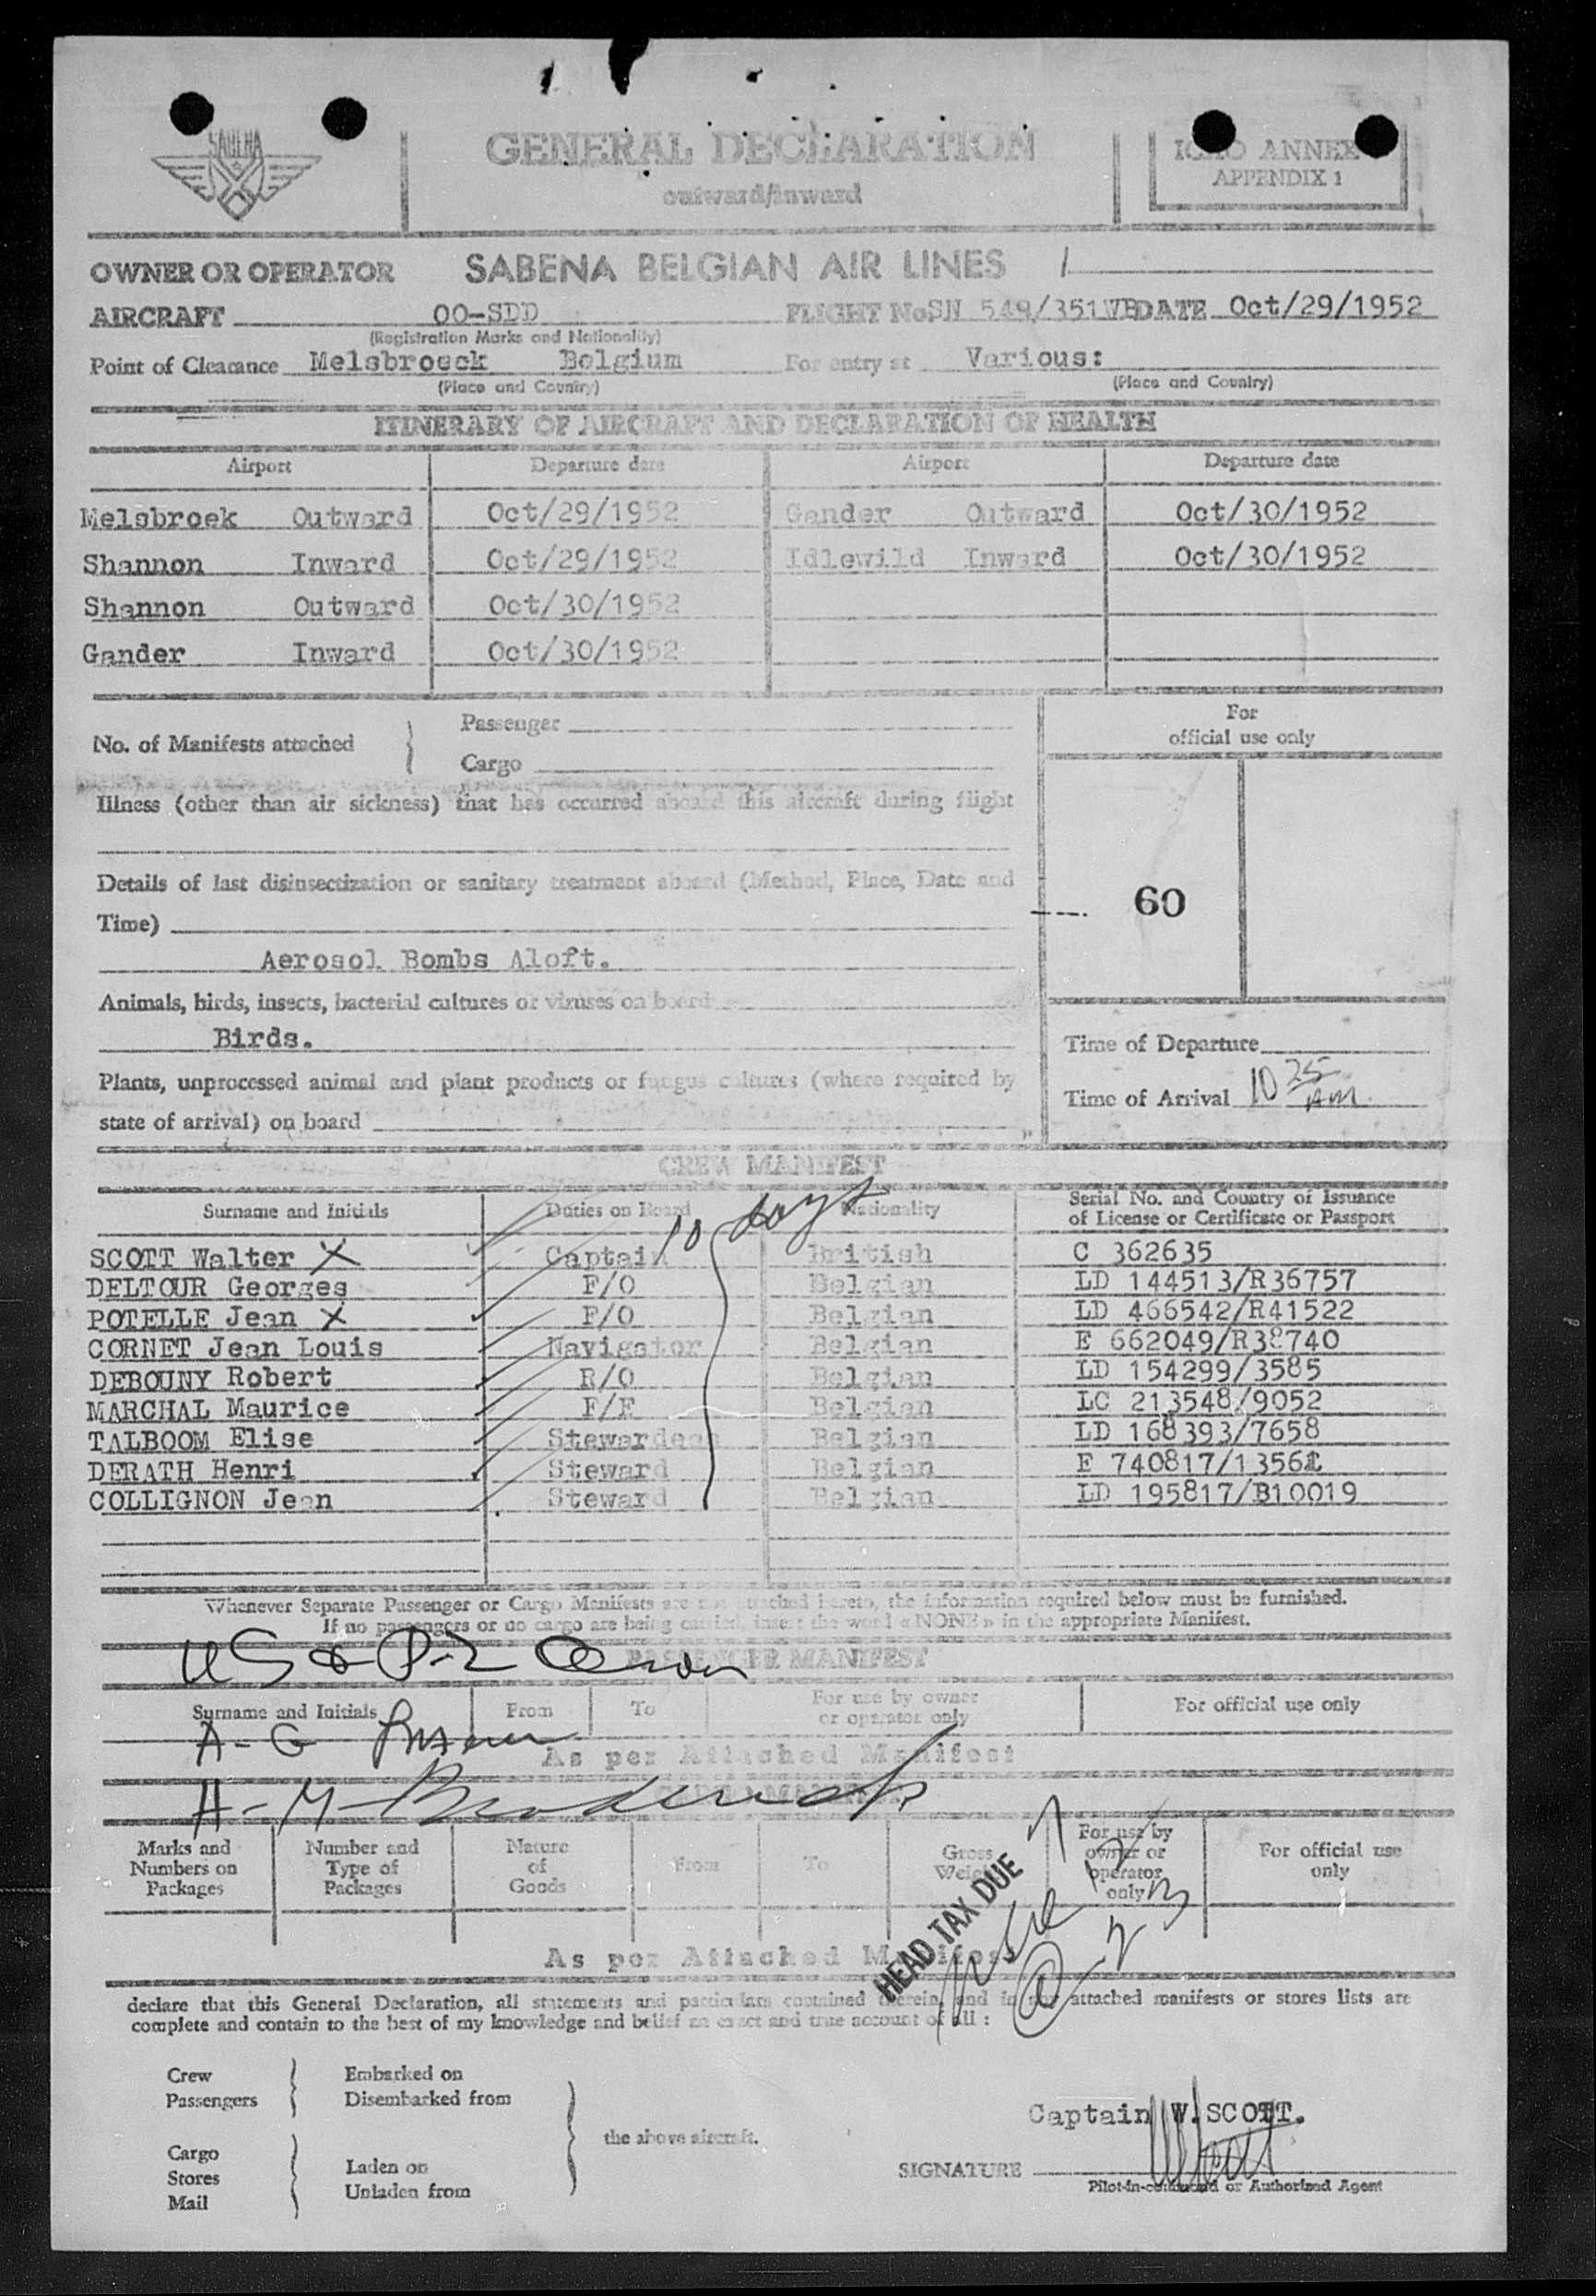 SABENA
GENERAL DECLARATION
outward/inward
ICAO ANNEX
APPENDIX 1
OWNER OR OPERATOR SABENA BELGIAN AIR LINES
AIRCRAFT OO-SDD FLIGHT No. SN 549/351 DATE Oct/29/1952
(Registration Marks and Nationality)
Point of Clearance Melsbroeck Belgium For entry at Various:
(Place and Country) (Place and Country)
ITINERARY OF AIRCRAFT AND DECLARATION OF HEALTH
Airport Departure date Airport Departure date
Melsbroek Outward Oct/29/1952 Gander Outward Oct/30/1952
Shannon Inward Oct/29/1952 Idlewild Inward Oct/30/1952
Shannon Outward Oct/30/1952
Gander Inward Oct/30/1952
No. of Manifests attached
Passenger
Cargo
For
official use only
Illness (other than air sickness) that has occurred aboard this aircraft during flight
Details of last disinsectization or sanitary treatment aboard (Method, Place, Date and
Time)
60
Aerosol Bombs Aloft.
Animals, birds, insects, bacterial cultures or viruses on board
Birds.
Time of Departure
Plants, unprocessed animal and plant products or fungus cultures (where required by
state of arrival) on board
Time of Arrival 10 25 AM
CREW MANIFEST
10 days
Surname and Initials Duties on Board Nationality Serial No. and Country of Issuance
of License or Certificate or Passport
SCOTT Walter X Captain British C 362635
DELTOUR Georges F/O Belgian LD 144513/R36757
POTELLE Jean X F/O Belgian LD 466542/R41522
CORNET Jean Louis Navigator Belgian E 662049/R38740
DEBOUNY Robert R/O Belgian LD 154299/3585
MARCHAL Maurice F/E Belgian LC 213548/9052
TALBOOM Elise Stewardess Belgian LD 168393/7658
DERATH Henri Steward Belgian E 740817/1356
COLLIGNON Jean Steward Belgian LD 195817/B10019
Whenever Separate Passenger or Cargo Manifests are not attached hereto, the information required below must be furnished.
If no passengers or no cargo are being carried, insert the word «NONE» in the appropriate Manifest.
PASSENGER MANIFEST
Surname and Initials From To For use by owner
or operator only
For official use only
As per Attached Manifest
Marks and
Numbers on
Packages
Number and
Type of
Packages
Nature
of
Goods
From
To
Gross
Weight
For use by
owner or
operator
only
For official use
only
HEAD TAX DUE
As per Attached Manifest
declare that this General Declaration, all statements and particulars contained therein, and in any attached manifests or stores lists are
complete and contain to the best of my knowledge and belief an exact and true account of all :
Crew
Passengers
Embarked on
Disembarked from
Cargo
Stores
Mail
Laden on
Unladen from
the above aircraft.
Captain W. SCOTT.
SIGNATURE
Pilot-in-command or Authorized Agent